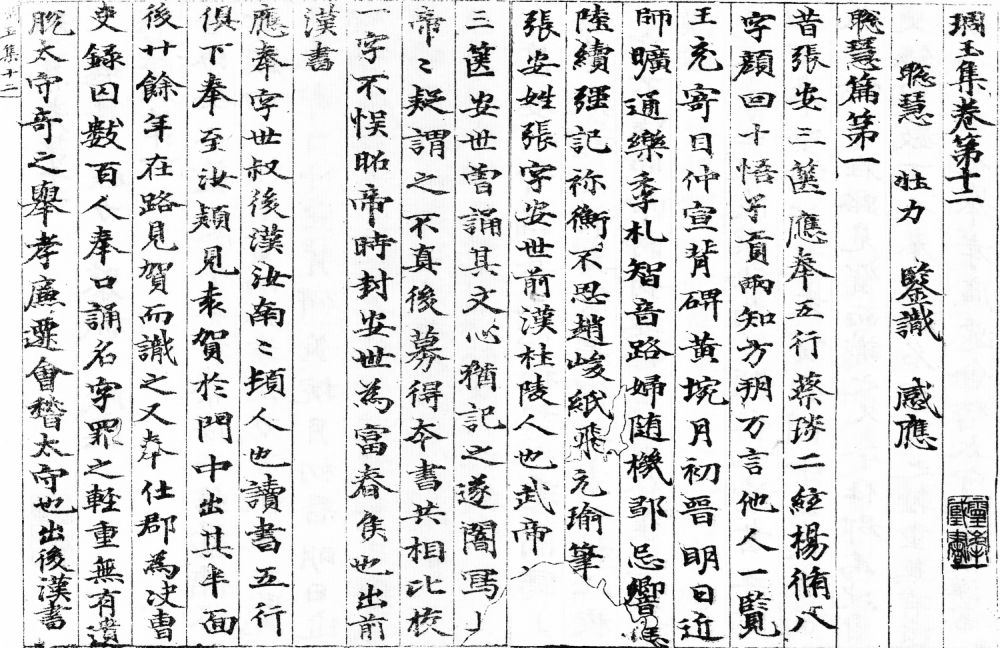 琱玉集卷第十二
聡慧 壯力 鑒識 感應
聡慧篇第一
昔張安三篋應奉五行蔡琰二經楊脩八
字顔回十悟子貢兩知方朔万言他人一覧
王充寄目仲宣背碑黄琬月初晋明日近
師曠通樂季札智音路婦随機鄒忌響應
陸續强記祢衡不思趙峻紙飛元瑜筆
張安姓張字安世前漢杜陵人也武帝
三篋安世曽誦其文心猶記之遂闇寫
帝〻疑謂之不真後募得夲書共相比挍
一字不悮昭帝時封安世為富春侯也出前
漢書
應奉字世叔後漢汝南〻頓人也讀書五行
俱下奉至汝穎見袁賀於門中出其半面
後廿餘年在路見賀而識之又奉仕郡為决曺
吏録囚數百人奉口誦名字罪之軽重無有遺
脱太守竒之舉孝廉遷會稽太守也出後漢書
玉集十二